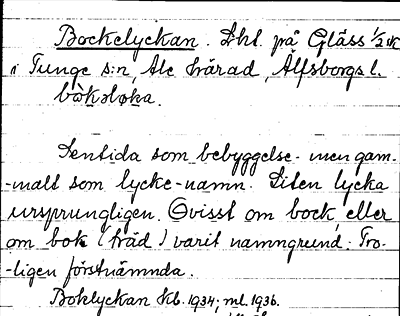 Bockelyckan. Lht. på Gläss 1/2 mk
i Tunge s:n, Ale härad, Älfsborgs l.
bòkəlỳka.
Sentida som bebyggelse- men gam-
-malt som lycke-namn. Liten lycka
ursprungligen. Ovisst om bock, eller
om bok (träd) varit namngrund. Tro-
-ligen förstnämnda.
Boklyckan Kb. 1934; ml. 1936.